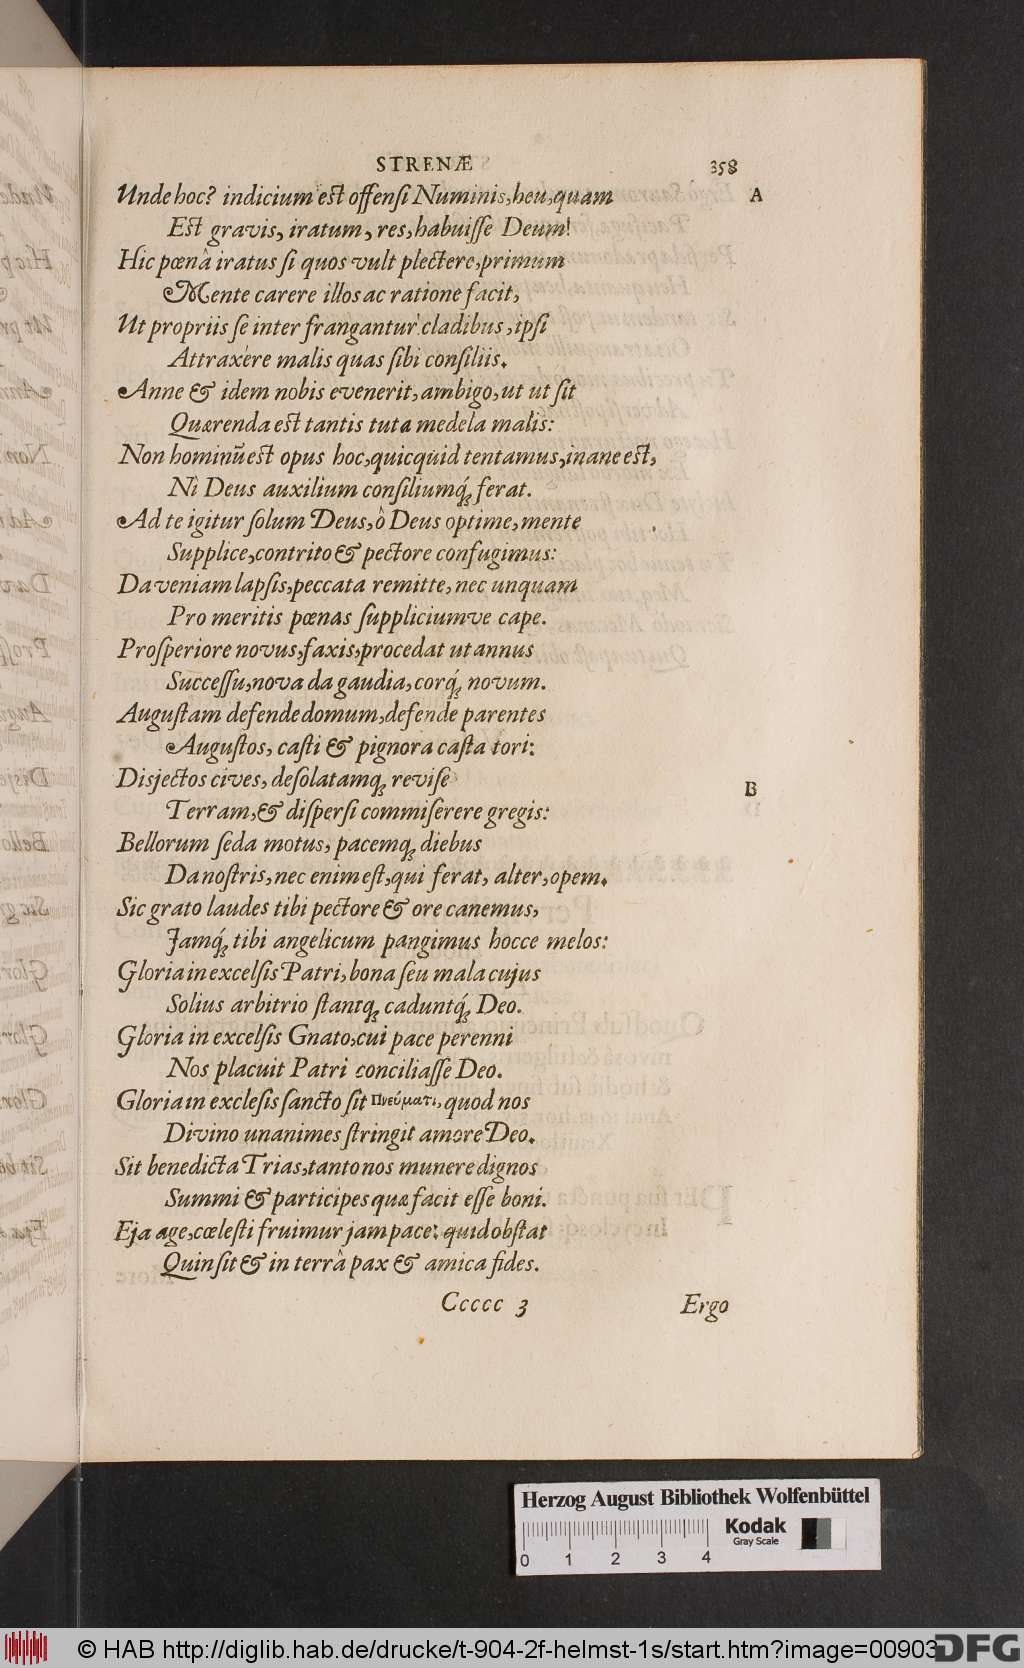 STRENÆ 358
Unde hoc? indicium est offensi Numinis, heu, quam A
Est gravis, iratum, res, habuiſſe Deum!
Hic pœnâ iratus ſi quos vult plectere, primum
Mente carere illos ac ratione facit,
Ut propriis ſe inter frangantur cladibus, ipſi
Attraxêre malis quas ſibi conſiliis.
Anne & idem nobis evenerit, ambigo, ut ut ſit
Quærenda est tantis tuta medela malis:
Non hominũ est opus hoc, quicquid tentamus, inane est,
Nî Deus auxilium conſiliumq́ꝫ ferat.
Ad te igitur ſolum Deus, ô Deus optime, mente
Supplice, contrito & pectore confugimus:
Da veniam lapſis, peccata remitte, nec unquam
Pro meritis pœnas ſuppliciumve cape.
Proſperiore novus, faxis, procedat ut annus
Succeſſu, nova da gaudia, corq́ꝫ novum.
Auguſtam defende domum, defende parentes
Auguſtos, caſti & pignora caſta tori:
Disjectos cives, deſolatamqꝫ reviſe
B
Terram, & diſperſi commiſerere gregis:
Bellorum ſeda motus, pacemqꝫ diebus
Da noſtris, nec enim eſt, qui ferat, alter, opem.
Sic grato laudes tibi pectore & ore canemus,
Jamq́ꝫ tibi angelicum pangimus hocce melos:
Gloria in excelſis Patri, bona ſeu mala cujus
Solius arbitrio ſtantqꝫ caduntq́ꝫ Deo.
Gloria in excelſis Gnato, cui pace perenni
Nos placuit Patri conciliaſſe Deo.
Gloria in excleſis ſancto ſit Πνεύματι, quod nos
Divino unanimes ſtringit amore Deo.
Sit benedicta Trias, tanto nos munere dignos
Summi & participes quæ facit eſſe boni.
Eja age, cœleſti fruimur jam pace: quid obſtat
Quin ſit & in terrâ pax & amica fides.
Ccccc 3 Ergo
Herzog August Bibliothek Wolfenbüttel
Kodak
Gray Scale
0 1 2 3 4
© HAB http://diglib.hab.de/drucke/t-904-2f-helmst-1s/start.htm?image=00903
DFG